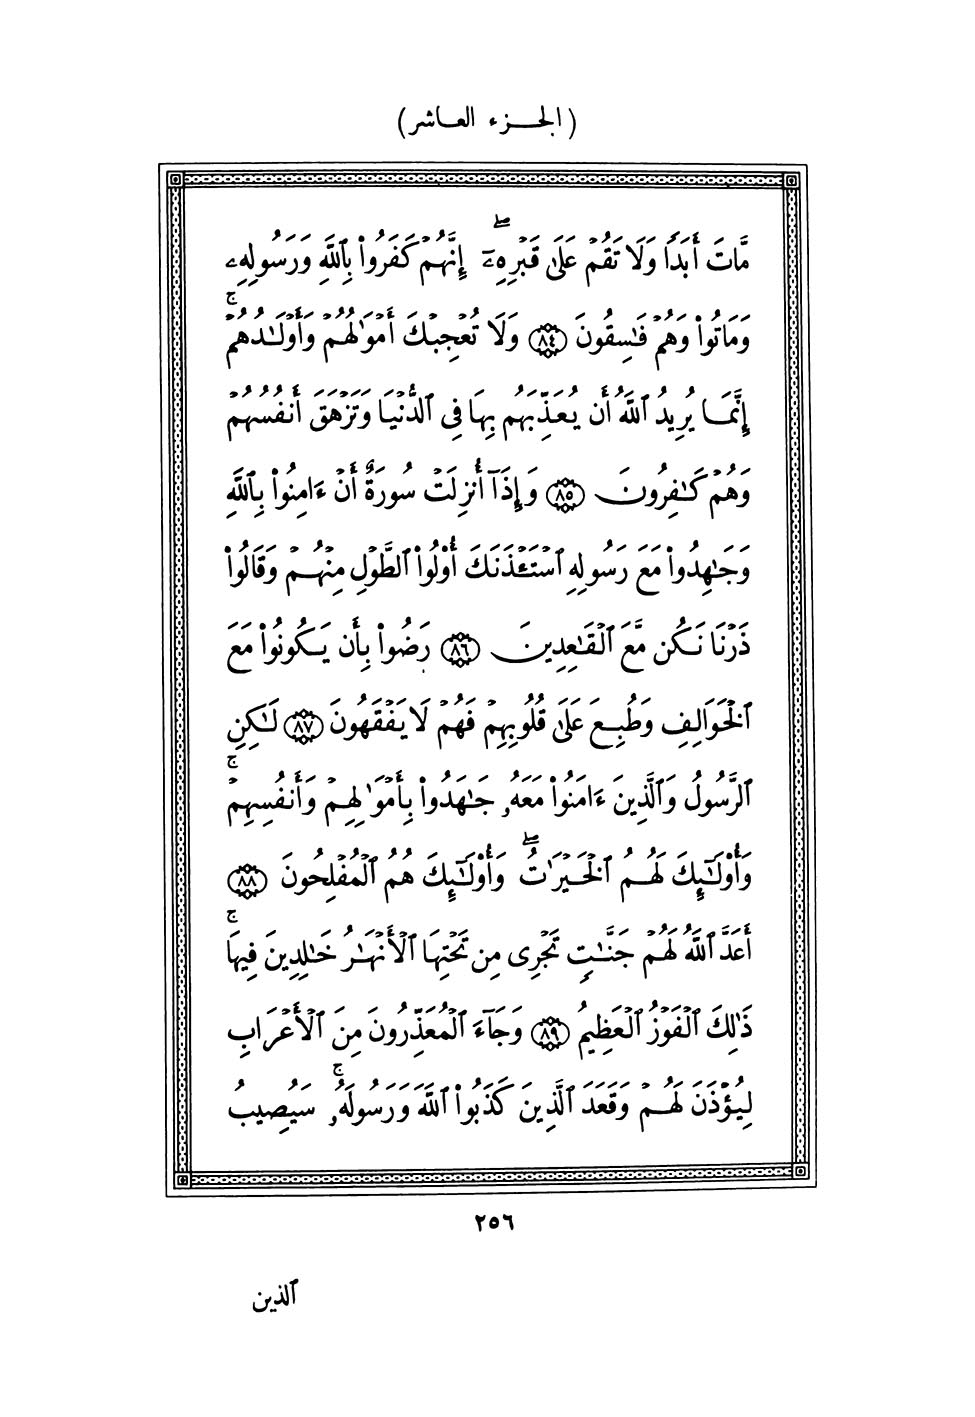 (الجزء العاشر)
مَّاتَ أَبَدًا وَلَا تَقُمْ عَلَىٰ قَبْرِهِۦٓ ۖ إِنَّهُمْ كَفَرُوا۟ بِٱللَّهِ وَرَسُولِهِۦ
وَمَاتُوا۟ وَهُمْ فَـٰسِقُونَ ٨٤ وَلَا تُعْجِبْكَ أَمْوَٰلُهُمْ وَأَوْلَـٰدُهُمْ ۚ
إِنَّمَا يُرِيدُ ٱللَّهُ أَن يُعَذِّبَهُم بِهَا فِى ٱلدُّنْيَا وَتَزْهَقَ أَنفُسُهُمْ
وَهُمْ كَـٰفِرُونَ ٨٥ وَإِذَآ أُنزِلَتْ سُورَةٌ أَنْ ءَامِنُوا۟ بِٱللَّهِ
وَجَـٰهِدُوا۟ مَعَ رَسُولِهِ ٱسْتَـْٔذَنَكَ أُو۟لُوا۟ ٱلطَّوْلِ مِنْهُمْ وَقَالُوا۟
ذَرْنَا نَكُن مَّعَ ٱلْقَـٰعِدِينَ ٨٦ رَضُوا۟ بِأَن يَكُونُوا۟ مَعَ
ٱلْخَوَالِفِ وَطُبِعَ عَلَىٰ قُلُوبِهِمْ فَهُمْ لَا يَفْقَهُونَ ٨٧ لَـٰكِنِ
ٱلرَّسُولُ وَٱلَّذِينَ ءَامَنُوا۟ مَعَهُۥ جَـٰهَدُوا۟ بِأَمْوَٰلِهِمْ وَأَنفُسِهِمْ ۚ
وَأُو۟لَـٰٓئِكَ لَهُمُ ٱلْخَيْرَٰتُ ۖ وَأُو۟لَـٰٓئِكَ هُمُ ٱلْمُفْلِحُونَ ٨٨
أَعَدَّ ٱللَّهُ لَهُمْ جَنَّـٰتٍ تَجْرِى مِن تَحْتِهَا ٱلْأَنْهَـٰرُ خَـٰلِدِينَ فِيهَا ۚ
ذَٰلِكَ ٱلْفَوْزُ ٱلْعَظِيمُ ٨٩ وَجَآءَ ٱلْمُعَذِّرُونَ مِنَ ٱلْأَعْرَابِ
لِيُؤْذَنَ لَهُمْ وَقَعَدَ ٱلَّذِينَ كَذَبُوا۟ ٱللَّهَ وَرَسُولَهُۥ ۚ سَيُصِيبُ
٢٥٦
ٱلذين